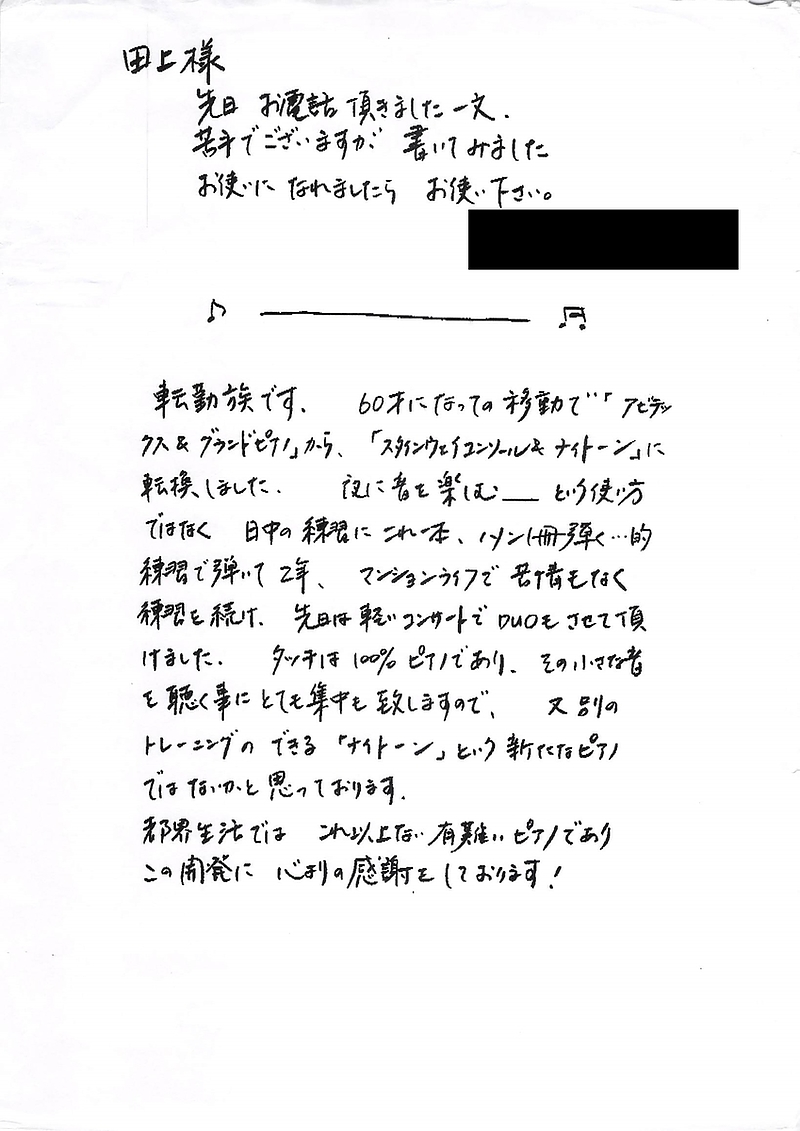 田上様
先日 お電話 頂きました 一文.
苦手でございますが 書いてみました
お使いに なれましたら お使い下さい。
転勤族です. 60才になっての移動で「アビテッ
クス&グランドピアノ」から、「スタインウェイコンソール&ナイトーン」に
転換しました. 夜に音を楽しむ── という使い方
ではなく 日中の練習にこれ一本、ハノン1冊弾く…的
練習で弾いて2年、マンションライフで苦情もなく
練習を続け、先日は軽いコンサートでDUOもさせて頂
けました. タッチは100%ピアノであり、その小さな音
を聴く事にとても集中も致しますので、又別の
トレーニングのできる「ナイトーン」という新たなピアノ
ではないかと思っております.
都界生活では これ以上ない有難いピアノであり
この開発に 心よりの感謝をしております!